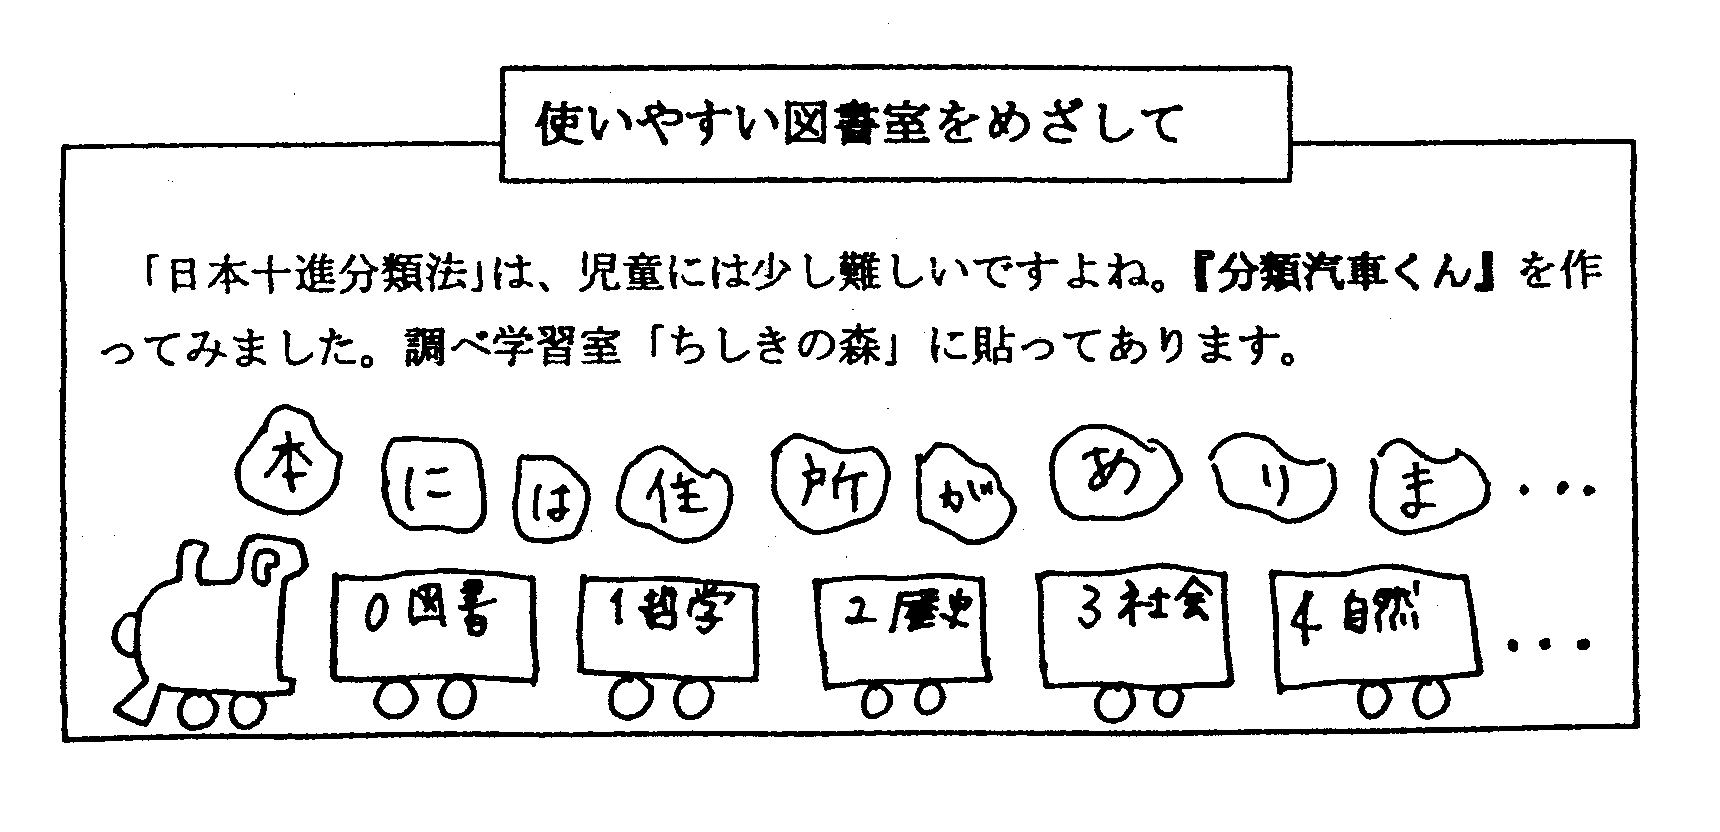 使いやすい図書室をめざして
「日本十進分類法」は、児童には少し難しいですよね。『分類汽車くん』を作
ってみました。調べ学習室「ちしきの森」に貼ってあります。
本には住所があります・・・
0 図書 1 哲学 2 歴史 3 社会 4 自然 ・・・